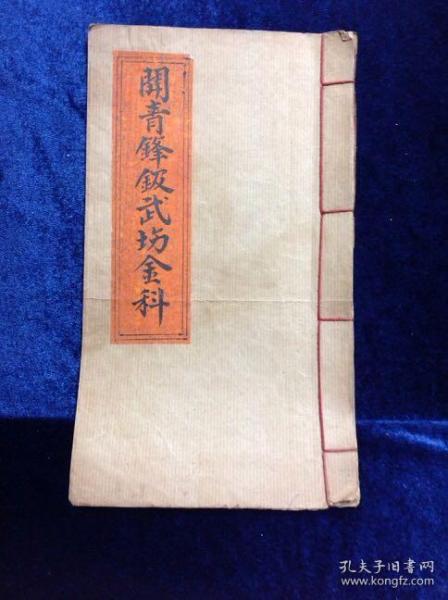 開青鋒鈒武坊金科
孔夫子旧书网
www.kongfz.com